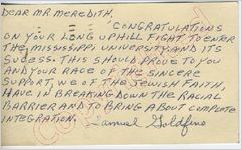 DEAR MR. MEREDITH,
CONGRATULATIONS
ON YOUR LONG UPHILL FIGHT TO ENTER
THE MISSISSIPPI UNIVERSITY AND ITS
SUCESS. THIS SHOULD PROVE TO YOU
AND YOUR RACE OF THE SINCERE
SUPPORT, WE OF THE JEWISH FAITH,
HAVE IN BREAKING DOWN THE RACIAL
BARRIER AND TO BRING ABOUT COMPLETE
INTEGRATION. Samuel Goldfino